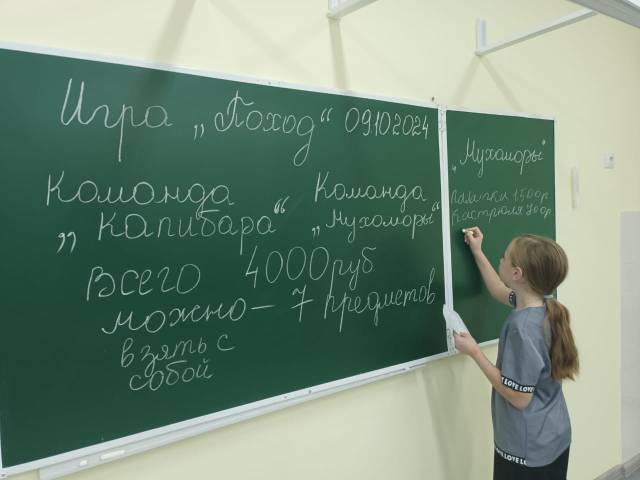 Игра „Поход“ 09.10.2024
Команда
„Капибара“
Команда
„Мухоморы“
всего 4000 руб
можно – 7 предметов
взять с
собой
„Мухоморы“
Палатка 1500р
Кастрюля 700р
LOVE LOVE
LOVE LO